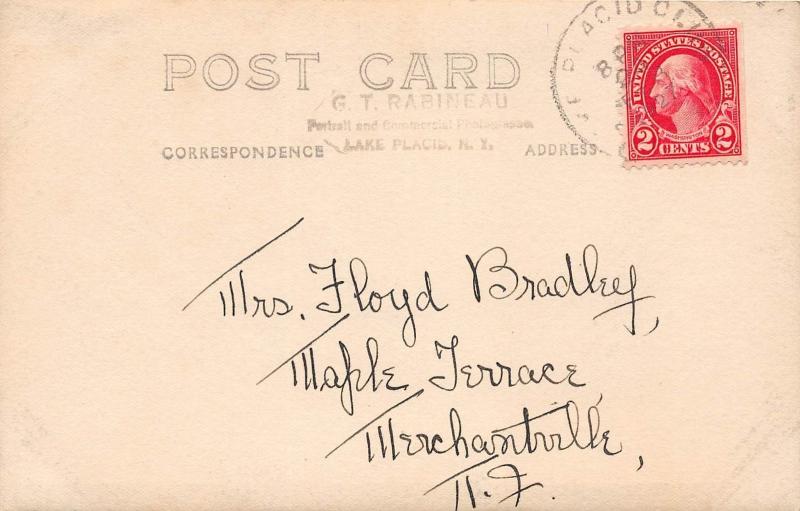 PLACID CLU
UNITED STATES POSTAGE
WASHINGTON
2 CENTS 2
POST CARD
G. T. RABINEAU
Portrait and Commercial Photographer
LAKE PLACID, N. Y.
CORRESPONDENCE
ADDRESS
Mrs. Floyd Bradley,
Maple Terrace,
Merchantville,
N.J.